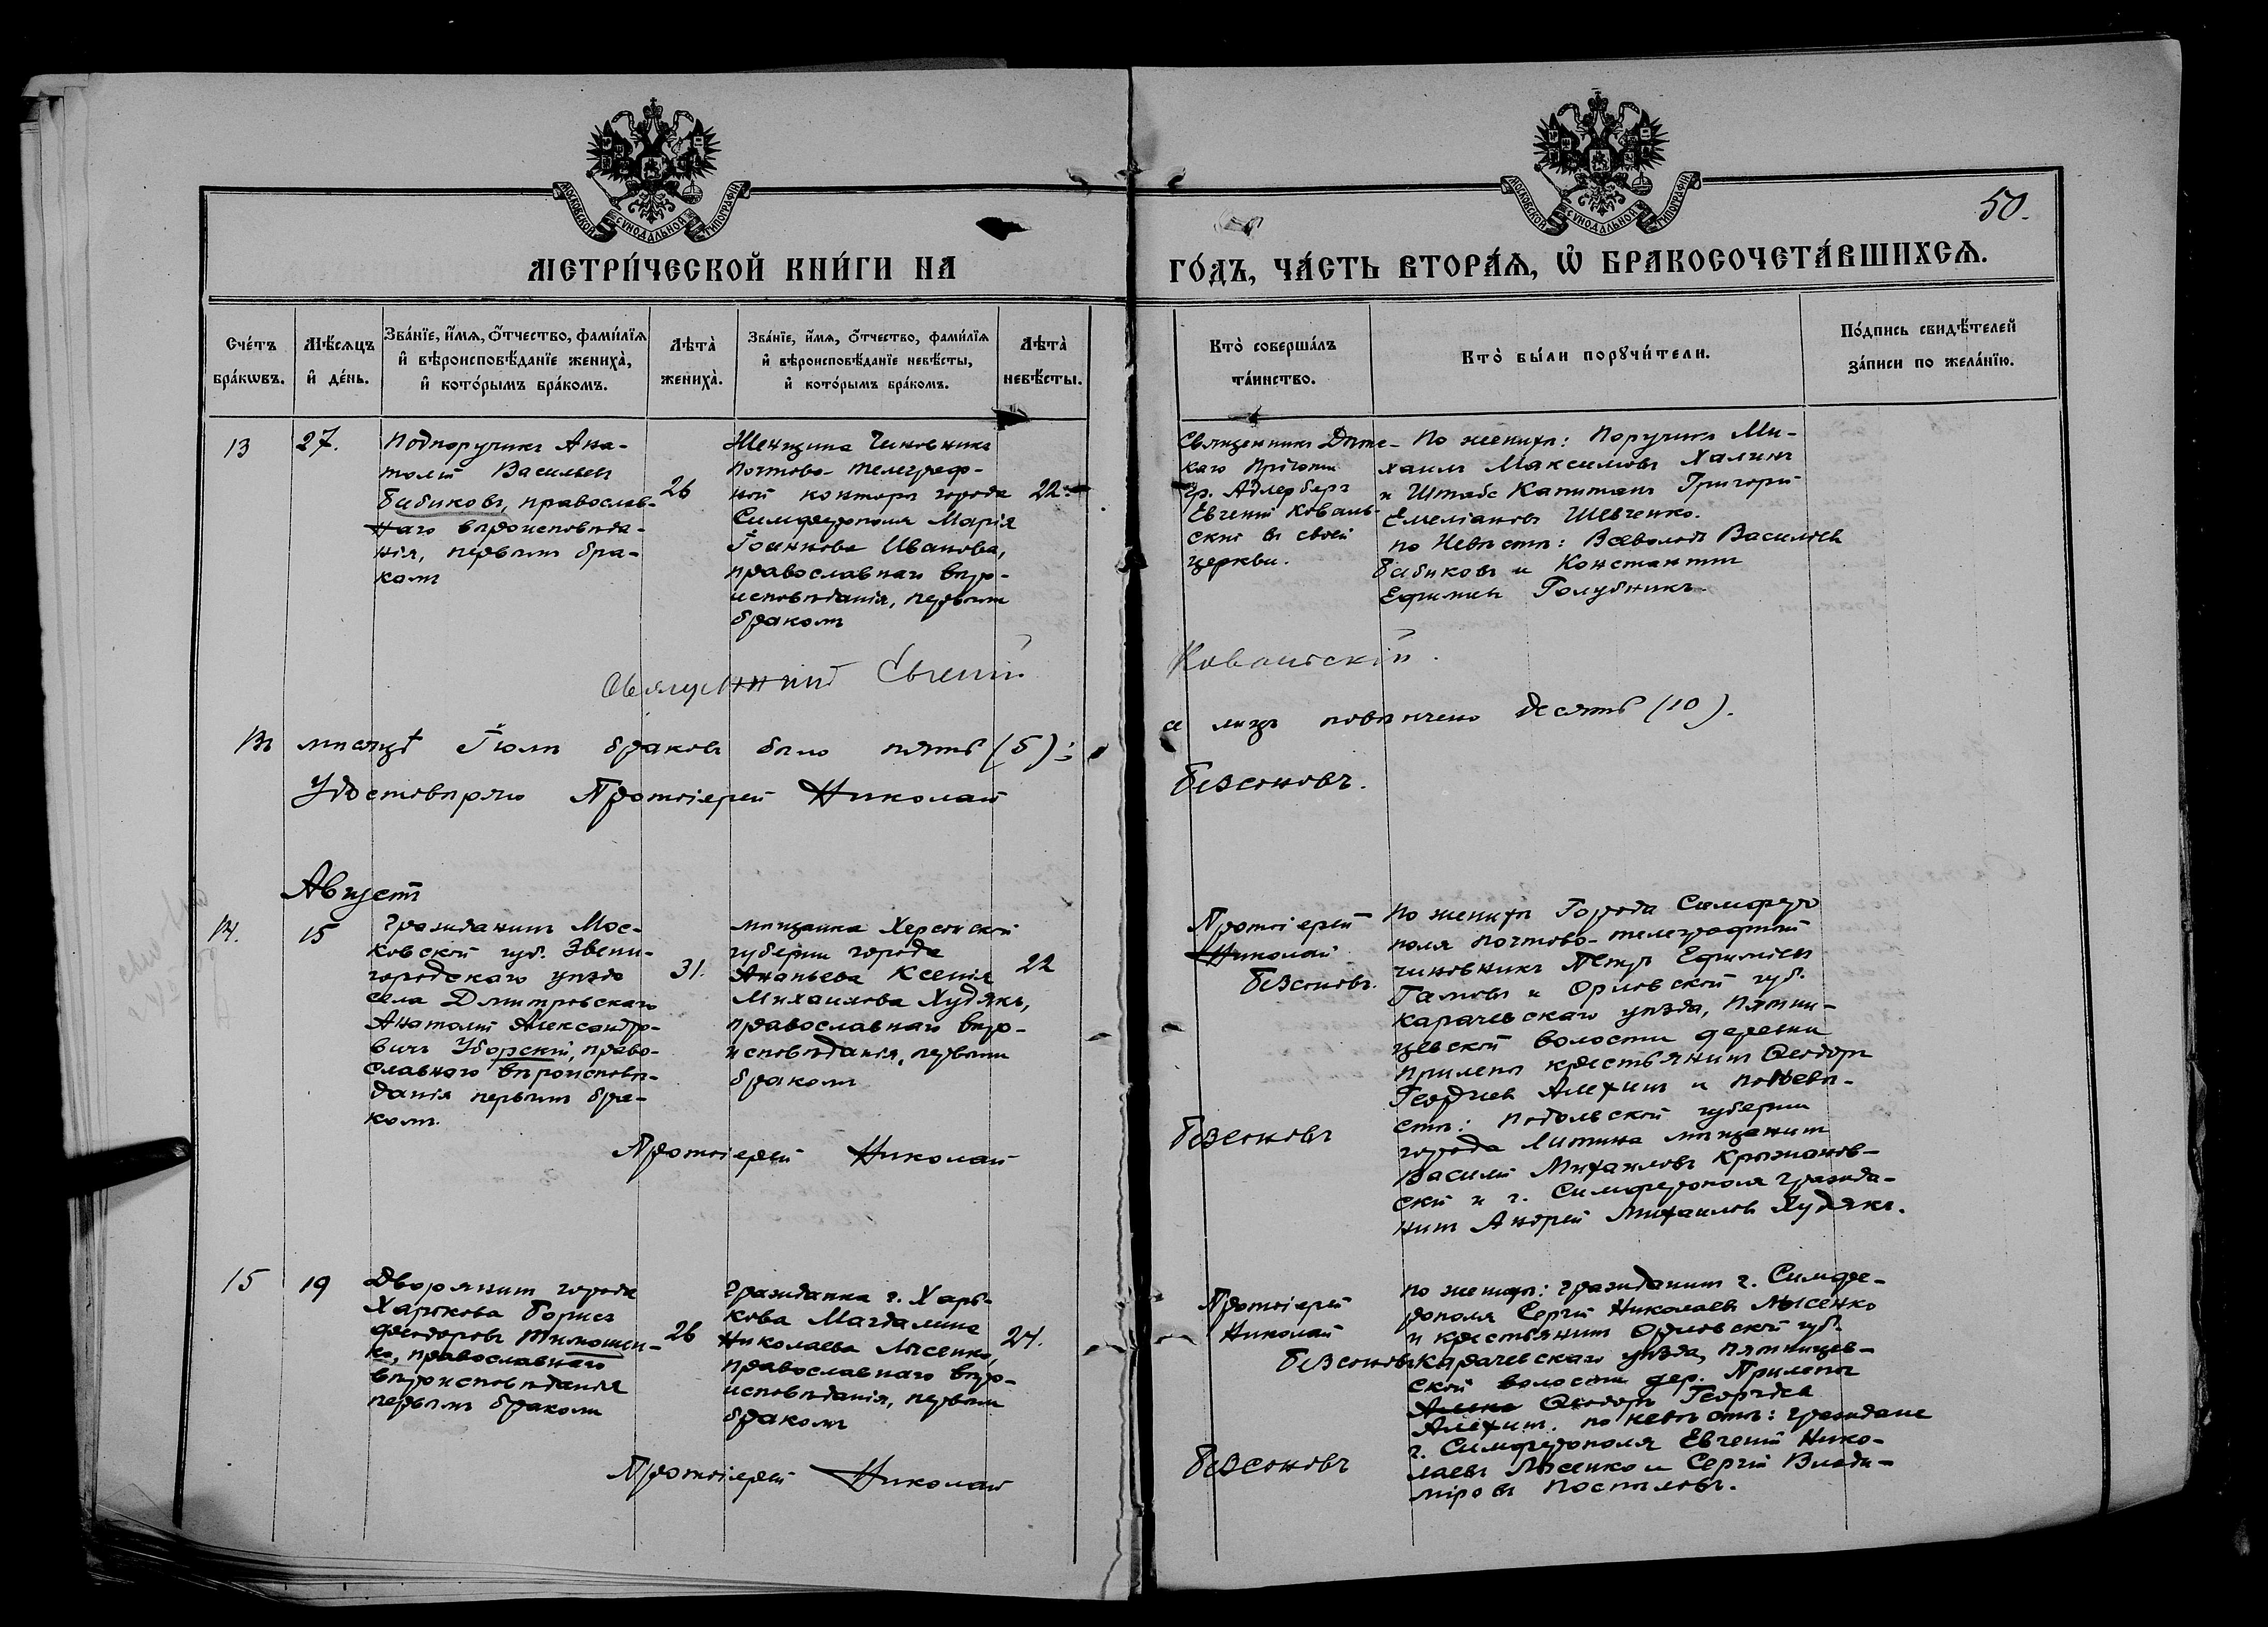 МОСКОВСКОЙ СУНОДАЛЬНОЙ ТИПОГРАФІИ
МОСКОВСКОЙ СУНОДАЛЬНОЙ ТИПОГРАФІИ
50.
МЕТРИ́ЧЕСКОЙ КНИ́ГИ НА
ГО́ДЪ, ЧА́СТЬ ВТОРА́Ѧ, Ѽ БРАКОСОЧЕТА́ВШИХСѦ.
Сче́тъ
бра́кѡвъ.
Мѣ́сѧцъ
и҆ де́нь.
Зва́нїе, и҆́мѧ, ѻ҆́тчество, фами́лїѧ
и҆ вѣроисповѣ́данїе жениха̀,
и҆ кото́рымъ бра́комъ.
Лѣта̀
жениха̀.
Зва́нїе, и҆́мѧ, ѻ҆́тчество, фами́лїѧ
и҆ вѣроисповѣ́данїе невѣ́сты,
и҆ кото́рымъ бра́комъ.
Лѣта̀
невѣ́сты.
Кто̀ соверша́лъ
та́инство.
Кто̀ бы́ли порꙋчи́тели.
По́дпись свидѣ́телей
за́писи по жела́нїю.
13
27.
Подпоручикъ Ана-
толій Васильевъ
Бибиковъ, православ-
наго вѣроисповѣда-
нія, первымъ бра-
комъ
26
Женщина Чиновника
почтово-телеграф-
ной конторы города
Симферополя Марія
Іоаннова Иванова,
православнаго вѣро-
исповѣданія, первымъ
бракомъ
22.
Священникъ
гр. Адлербергъ
Евгеній Коваль-
скій въ своей
церкви.
По женихѣ: Поручикъ Ми-
хаилъ Максимовъ Халинъ
и Штабс Капитанъ Григорій
Емеліановъ Шевченко.
по Невѣстѣ: Всеволодъ Васильевъ
Бибиковъ и Константинъ
Ефимовъ Голубникъ.
Священникъ Евгеній
Ковальскій.
Въ мѣсяцѣ Іюлѣ браковъ было пять (5);
а лицъ повѣнчено десять (10).
Удостовѣряю Протоіерей Николай
Безсоновъ.
Августъ
14.
15
Гражданинъ Мос-
ковской губ. Звени-
городскаго уѣзда
села Дмитровскаго
Анатолій Александро-
вичъ Уборскій, право-
славнаго вѣроисповѣ-
данія первымъ бра-
комъ.
31.
мѣщанка Херсонской
губерніи города
Ананьева Ксенія
Михаилова Худякъ,
православнаго вѣро-
исповѣданія, первымъ
бракомъ
22
Протоіерей
Николай
Безсоновъ.
По женихѣ Города Симферо
поля почтово-телеграфный
чиновникъ Петръ Ефиміевъ
и Орловской губ.
Карачевскаго уѣзда, Пятни-
цевской волости деревни
Прилепъ крестьянинъ Ѳеодоръ
Георгіевъ Алехинъ и по Невѣ-
стѣ: Подольской губерніи
города Литина мѣщанинъ
Василій Михаиловъ Крыжанов-
скій и г. Симферополя гражда-
нинъ Андрей Михаиловъ Худякъ.
Протоіерей Николай
Безсоновъ
15
19
Дворянинъ города
Харькова Борисъ
Феодоровъ Тимошен-
ко, православнаго
вѣроисповѣданія
первымъ бракомъ
26
Гражданка г. Харь-
кова Магдалина
Николаева Лысенко,
православнаго вѣро-
исповѣданія, первымъ
бракомъ
24.
Протоіерей
Николай
Безсоновъ
по женихѣ: гражданинъ г. Симфе-
рополя Сергій Николаевъ Лысенко
и крестьянинъ Орловской губ.
Карачевскаго уѣзда, Пятницев-
ской волости дер. Прилепъ
Ѳеодоръ Георгіевъ
Алехинъ. по невѣстѣ: граждане
г. Симферополя Евгеній Нико-
лаевъ Лысенко и Сергій Влади-
міровъ Поспѣловъ.
Протоіерей Николай
Безсоновъ